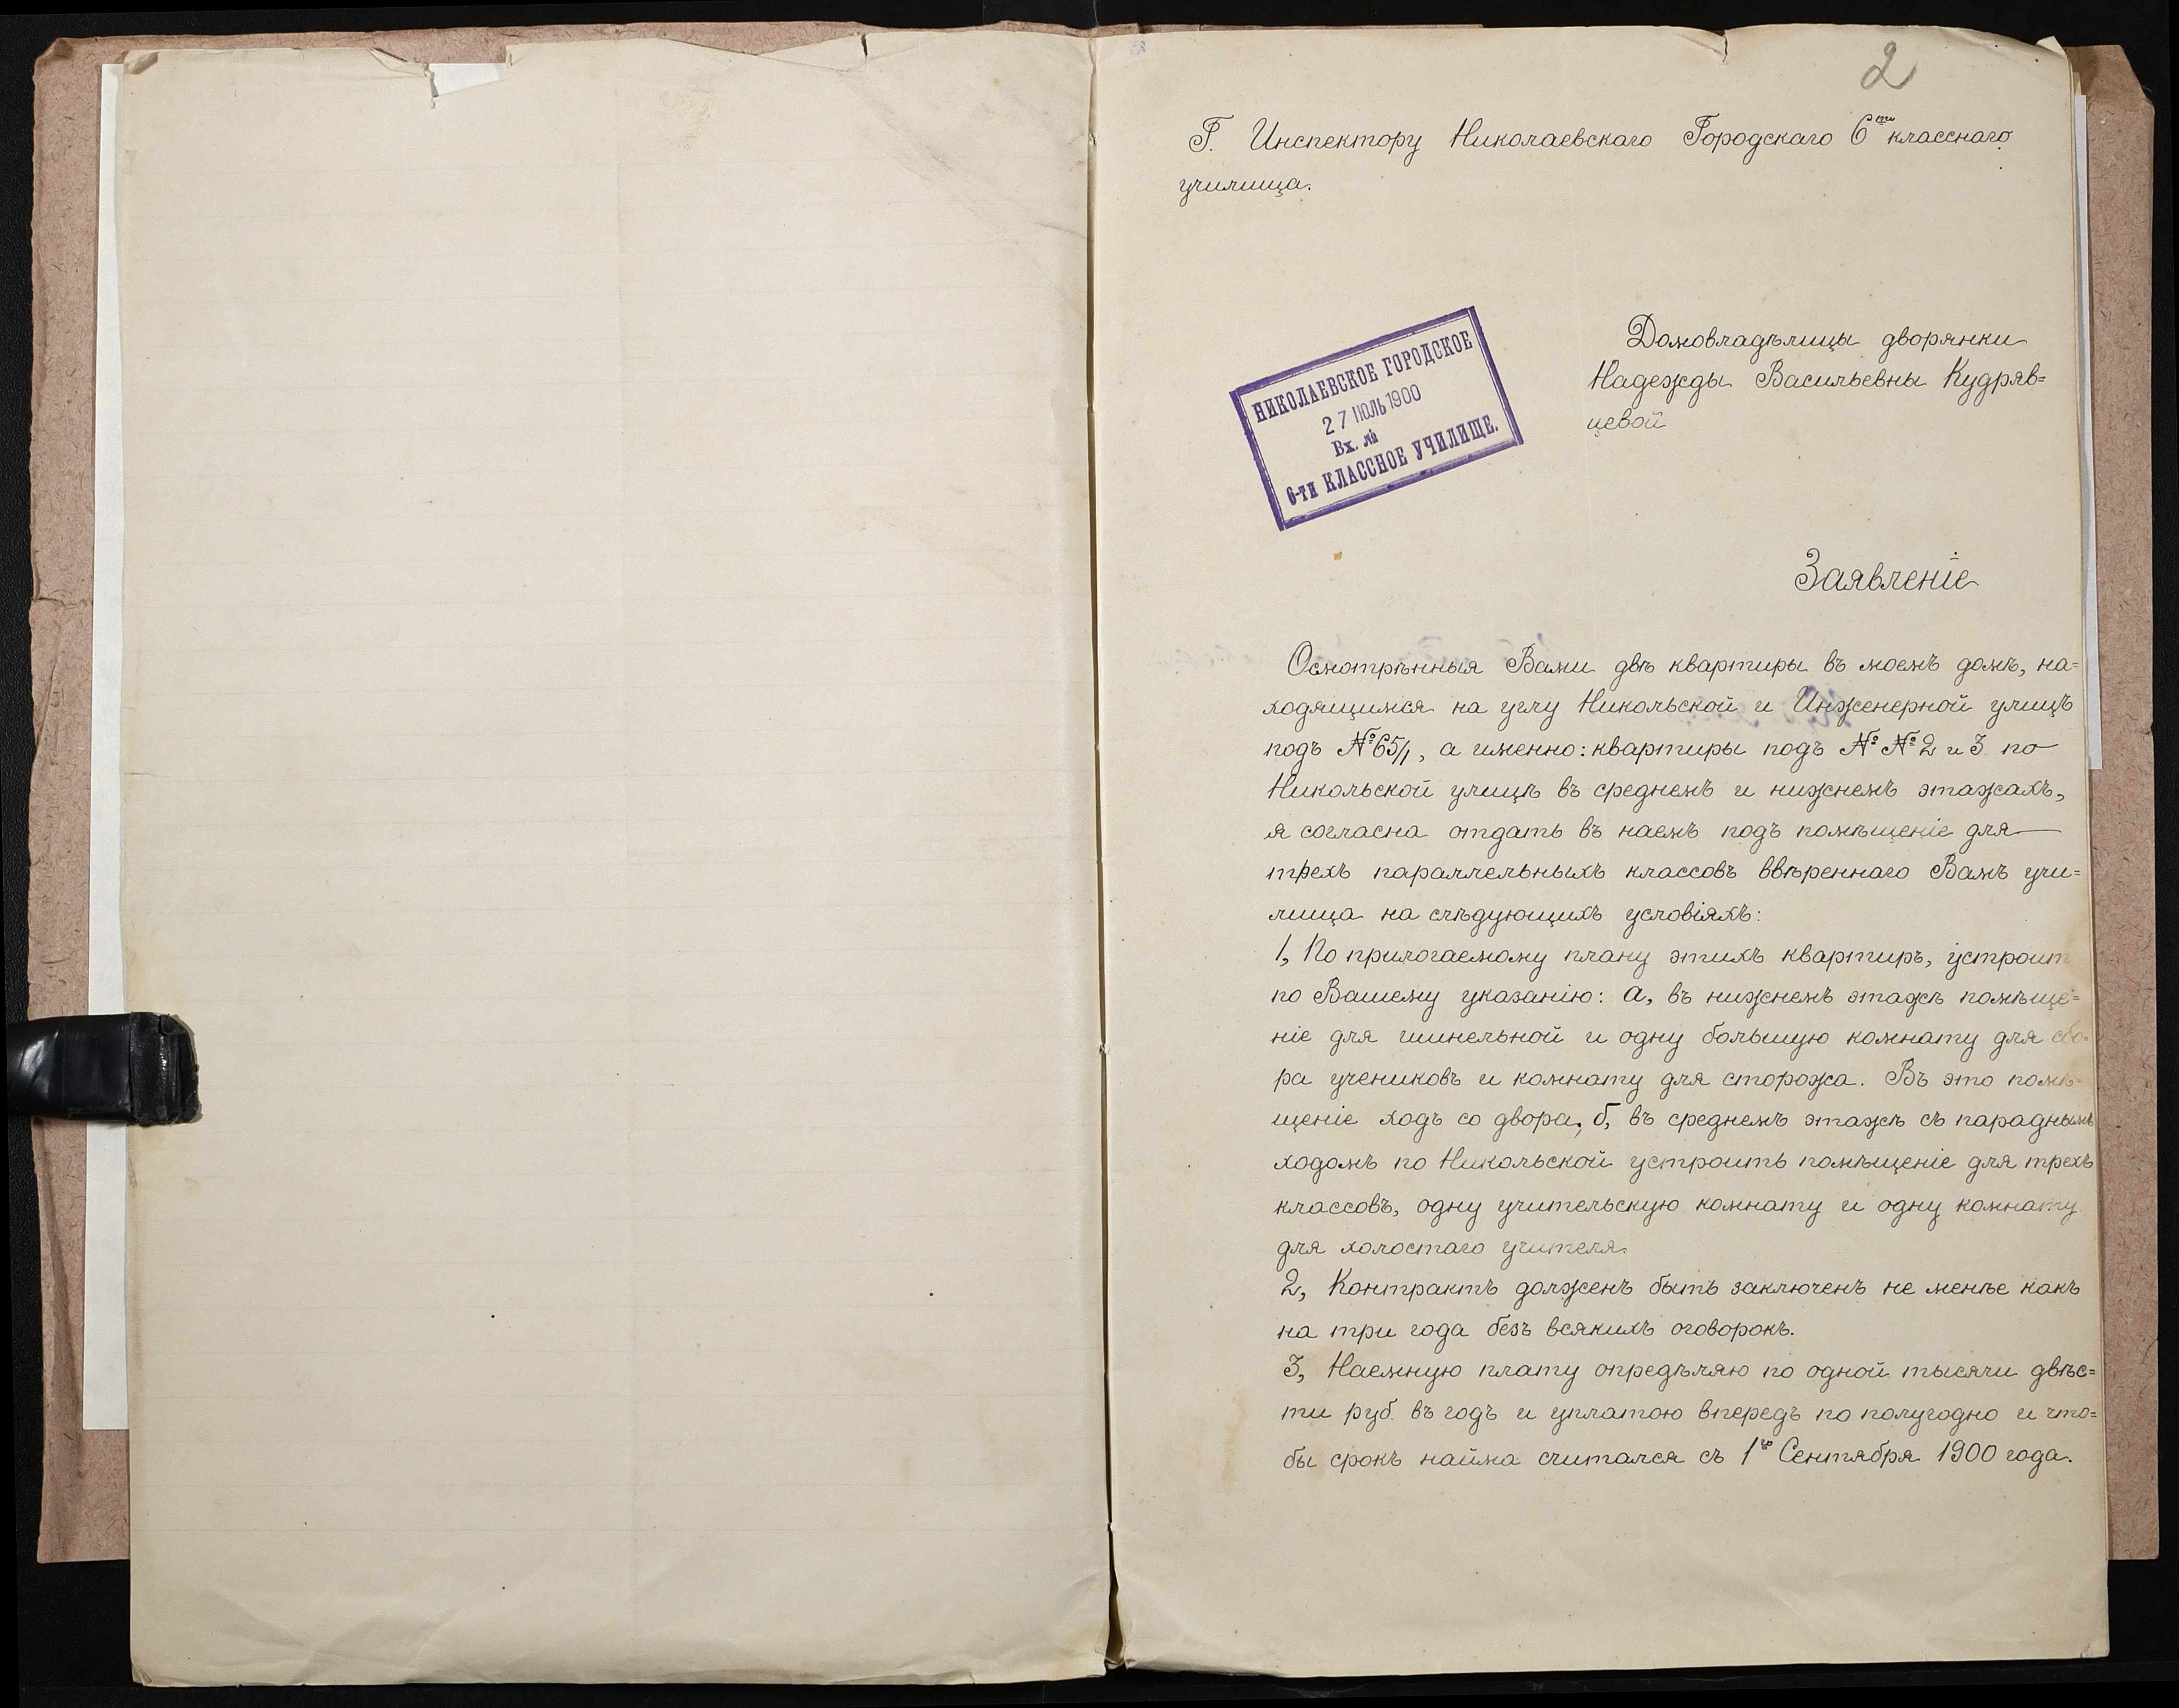 2
Г. Инспектору Николаевскаго Городскаго 6ти класснаго
училища.
НИКОЛАЕВСКОЕ ГОРОДСКОЕ
27 ІЮЛЬ 1900
Вх. №
6-ти КЛАССНОЕ УЧИЛИЩЕ.
Домовладѣлицы дворянки
Надежды Васильевны Кудряв=
цевой
Заявленіе
Осмотрѣнныя Вами двѣ квартиры въ моемъ домѣ, на=
ходящимся на углу Никольской и Инженерной улицъ
подъ №65/1, а именно: квартиры подъ №№2 и 3 по
Никольской улицѣ въ среднемъ и нижнемъ этажахъ,
я согласна отдать въ наемъ подъ помѣщеніе для
трехъ параллельныхъ классовъ ввѣреннаго Вамъ учи=
лища на слѣдующихъ условіяхъ:
1, По прилогаемому плану этихъ квартиръ, устроит
по Вашему указанію: а, въ нижнемъ этажѣ помѣще=
ніе для шинельной и одну большую комнату для сбо=
ра учениковъ и комнату для сторожа. Въ это помѣ=
щеніе ходъ со двора, б, въ среднемъ этажѣ съ параднымъ
ходомъ по Никольской устроить помѣщеніе для трехъ
классовъ, одну учительскую комнату и одну комнату
для холостаго учителя.
2, Контрактъ долженъ быть заключенъ не менѣе какъ
на три года безъ всякихъ оговорокъ.
3, Наемную плату опредѣляю по одной тысячи двѣс=
ти руб. въ годъ и уплатою впередъ по полугодно и что=
бы срокъ найма считался съ 1го Сентября 1900 года.